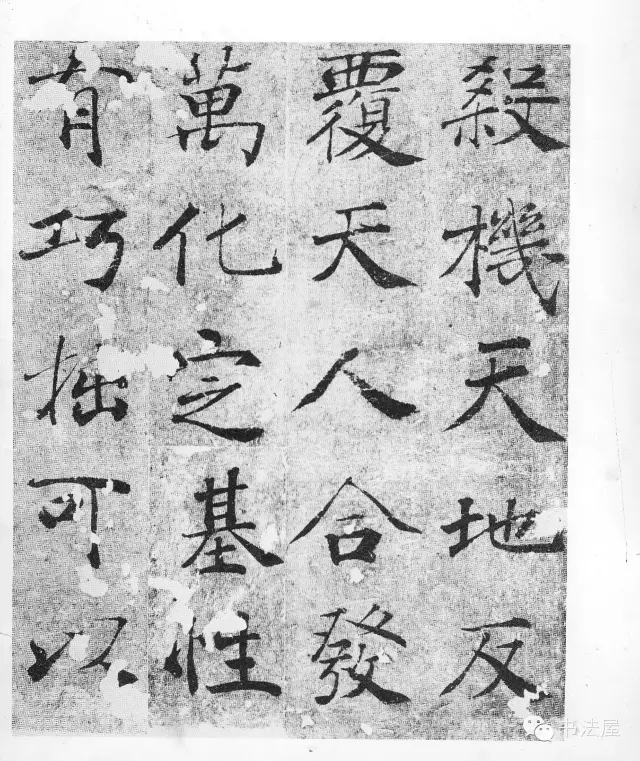 殺機天地反
覆天人合發
萬化定基性
有巧拙可以
书法屋